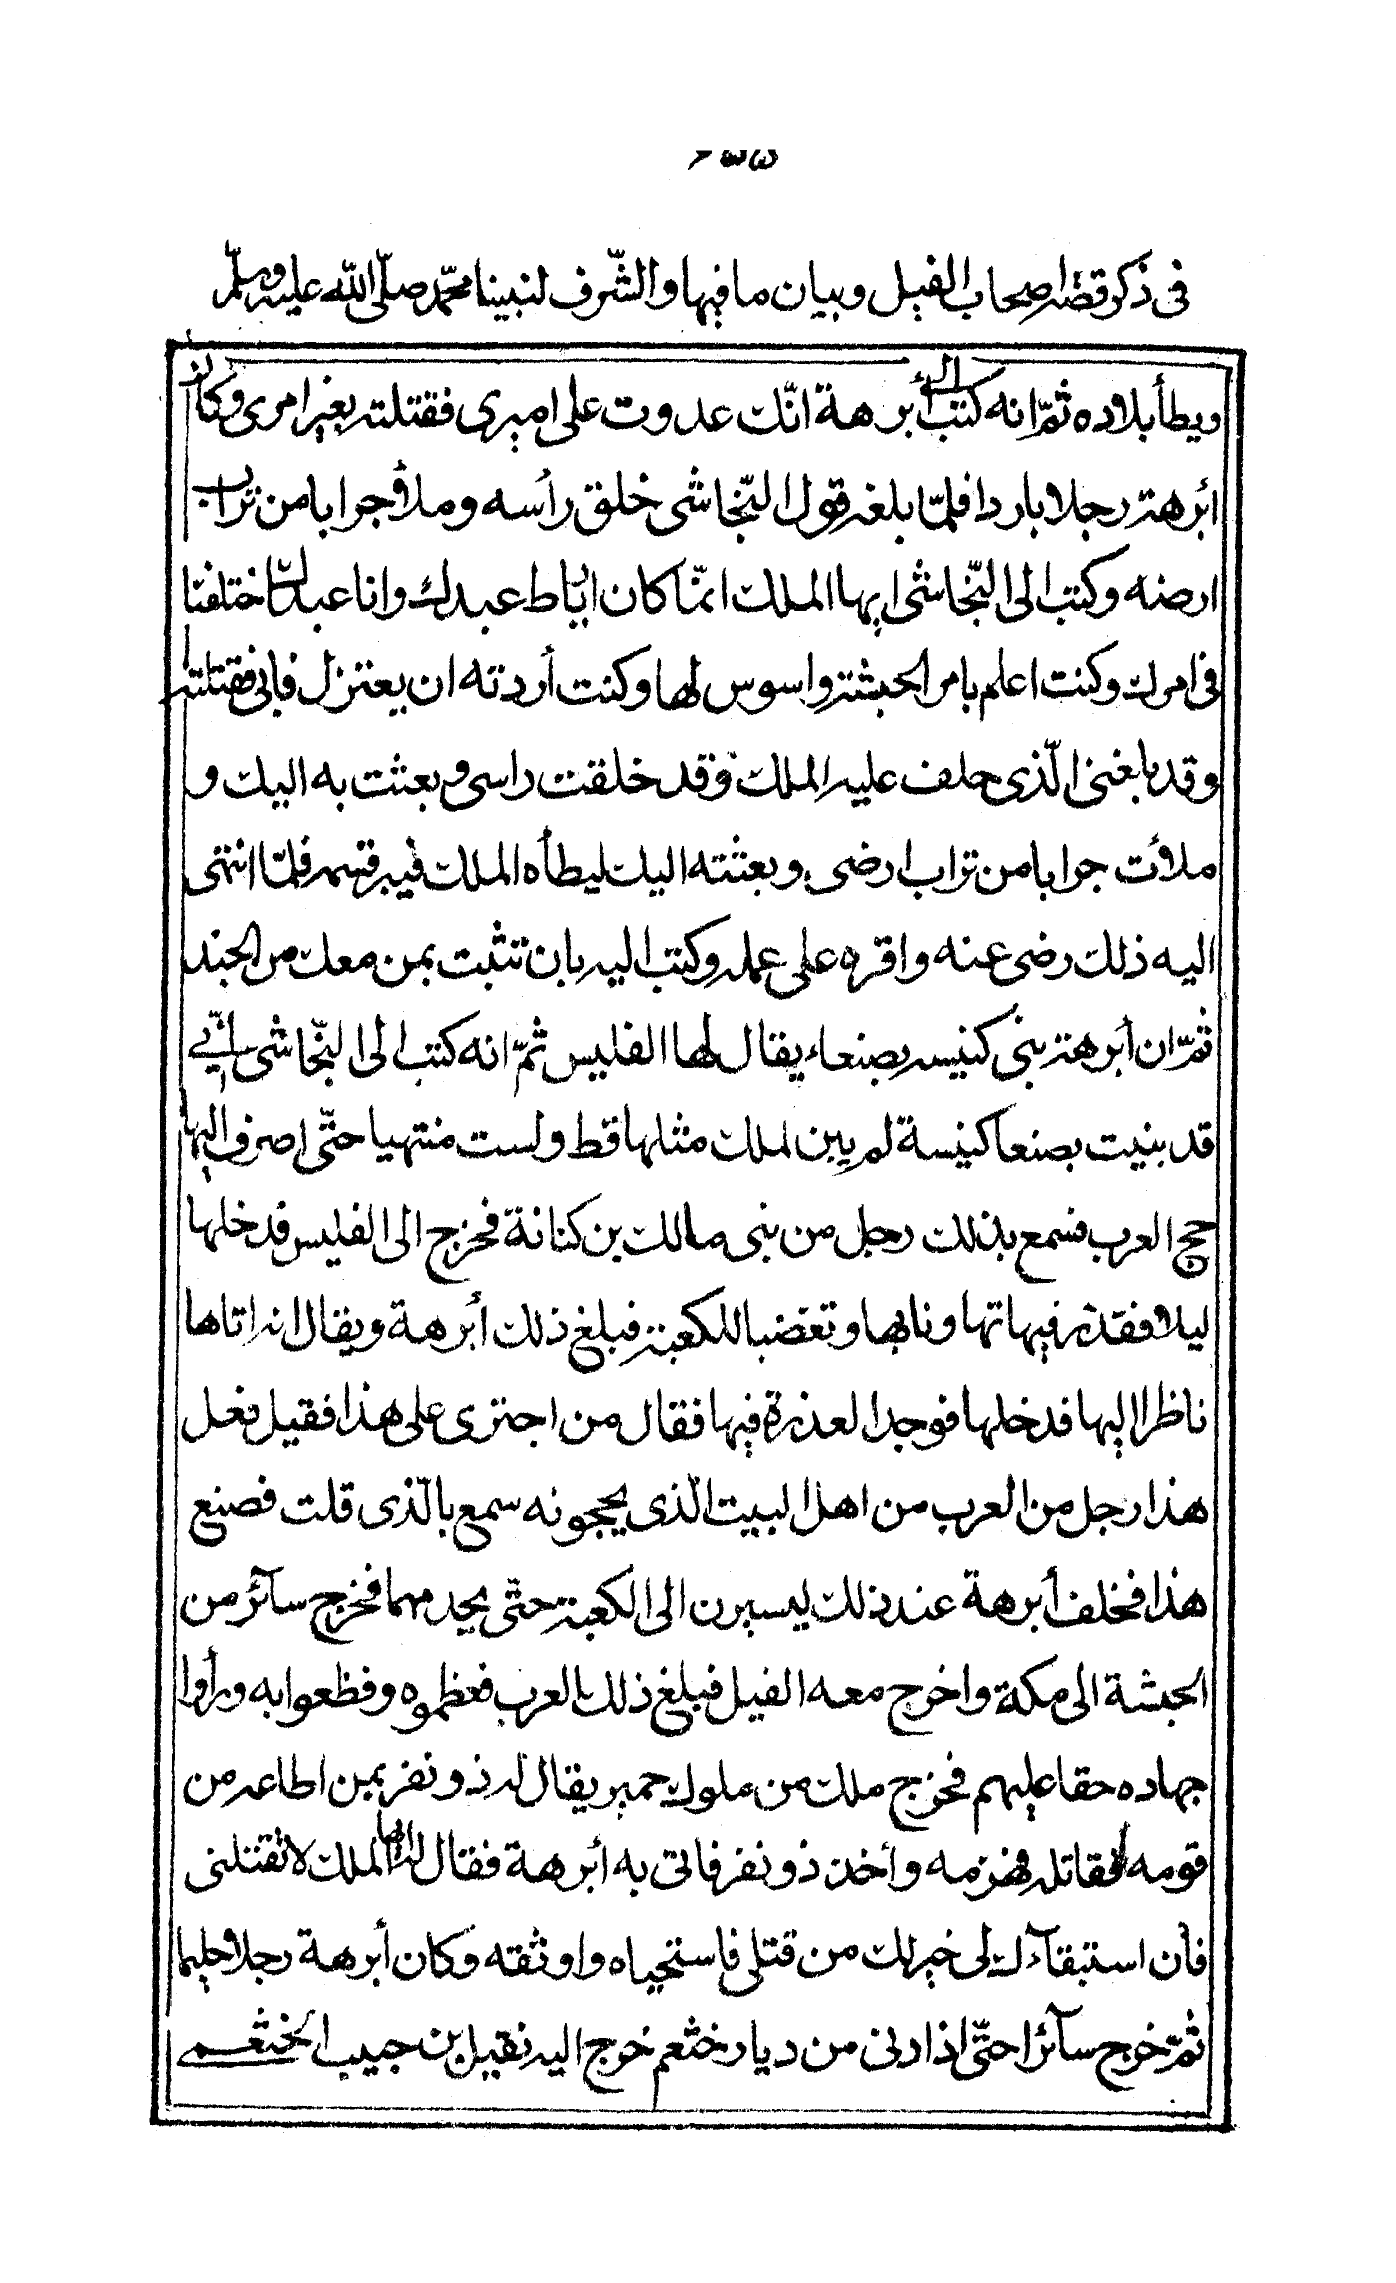 ٢٣٥
في ذكر قصة اصحاب الفيل وبيان ما فيها والشّرف لنبينا محمّد صلّى اللّه عليه وسلّم
ويطأ بلاده ثمّ انه كتب الى أبرهة انّك عدوت على اميرى فقتلته بغير امرى وكان
أبرهة رجلا باردا فلمّا بلغه قول النّجاشى خلق رأسه وملأ جرابا من تراب
ارضه وكتب الى النّجاشى ايها الملك انمّا كان ارياط عبدك وانا عبدك اختلفنا
فى امرك وكنت اعلم بامر الحبشة واسوس لها وكنت أردته ان يعتزل فابى فقتلته
وقد بلغنى الّذى حلف عليه الملك وقد خلقت راسى وبعثت به اليك و
ملأت جرابا من تراب ارضى وبعثته اليك ليطأه الملك فيبر قسمه فلمّا انتهى
اليه ذلك رضى عنه واقره على عمله وكتب اليه بان تثبت بمن معك من الجند
ثمّ ان أبرهة بنى كنيسه بصنعاء يقال لها القليس ثمّ انه كتب الى النّجاشى انّى
قد بنيت بصنعا كنيسة لم يبن لملك مثلها قط ولست منتهيا حتّى اصرف اليها
حج العرب فسمع بذلك رجل من بنى مالك بن كنانة فخرج الى القليس فدخلها
ليلا فقذر فيها تها ونابها وتغضبا للكعبة فبلغ ذلك أبرهة ويقال انه اتاها
ناظرا اليها فدخلها فوجد العذرة فيها فقال من اجترى على هذا فقيل فعل
هذا رجل من العرب من اهل البيت الّذى يحجونه سمع بالّذى قلت فصنع
هذا فحلف أبرهة عند ذلك ليسيرن الى الكعبة حتّى يجد مهما فخرج سآئر من
الحبشة الى مكة واخرج معه الفيل فبلغ ذلك العرب فعظموه وفظعوا به ورأوا
جهاده حقا عليهم فخرج ملك من ملوك حمير يقال له ذو نفر بمن اطاعه من
قومه فقاتله فهزمه وأخذ ذو نفر فاتى به أبرهة فقال له ايها الملك لا تقتلنى
فأن استبقآءك لى خير لك من قتلى فاستحياه واوثقه وكان أبرهة رجلا حليما
ثمّ خرج سآئرا حتّى اذا دنى من ديار خثعم خرج اليه نفيل بن حبيب الخثعمى